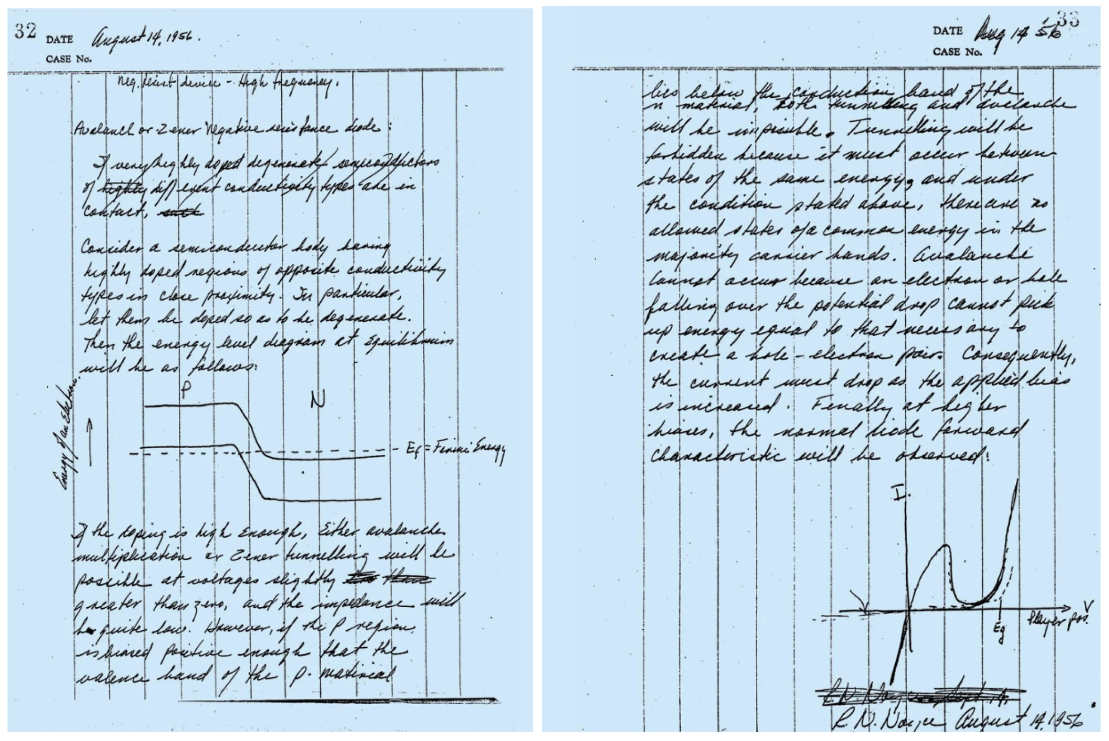 32 DATE August 14, 1956.
CASE No.
Neg. resist device - High frequency.
Avalanch or Zener Negative resistance diode:
If very highly doped degenerate semiconductors
of highly different conductivity types are in
contact, such
Consider a semiconductor body having
highly doped regions of opposite conductivity
types in close proximity. In particular,
let them be doped so as to be degenerate.
Then the energy level diagram at Equilibrium
will be as follows:
P
N
Energy of an Electron
Ef = Fermi Energy
If the doping is high enough, Either avalanche
multiplication or Zener tunnelling will be
possible at voltages slightly less than
greater than zero, and the impedance will
be quite low. However, if the P region
is biased positive enough that the
valence band of the P- material
33
DATE Aug 14 '56
CASE No.
lies below the conduction band of the
n material, both tunnelling and avalanche
will be impossible. Tunnelling will be
forbidden because it must occur between
states of the same energy, and under
the condition stated above, there are no
allowed states of a common energy in the
majority carrier bands. Avalanche
cannot occur because an electron or hole
falling over the potential drop cannot pick
up energy equal to that necessary to
create a hole-electron pair. Consequently,
the current must drop as the applied bias
is increased. Finally at higher
biases, the normal diode forward
characteristic will be observed:
I
V
Eg
P layer pos.
R. N. Noyce August 14, 1956